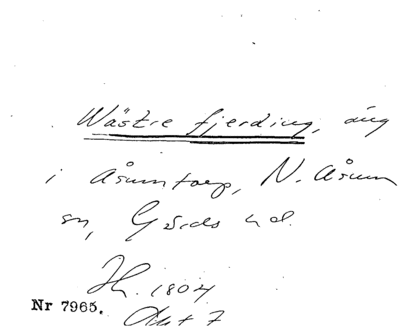 Wästre fjerding, äng
i Åsumtorp, N. Åsum
sn, Gärds hd.
Jh. 1804
Nr 7965.
Akt 7